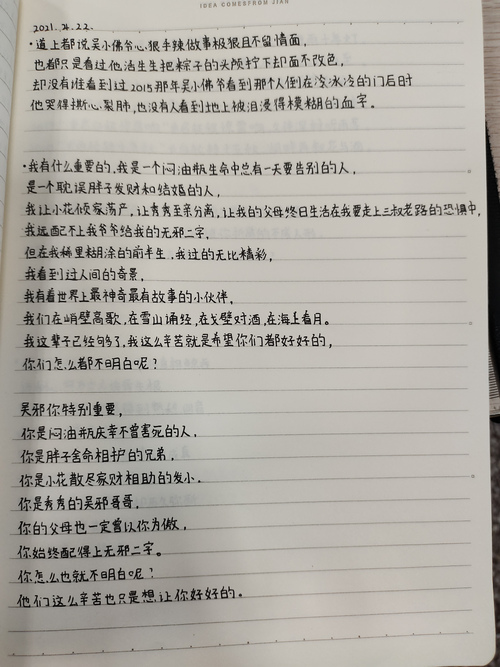 IDEA COMESFROM JIAN
2021.4.22.
·道上都说吴小佛爷心狠手辣做事极狠且不留情面,
也都只是看过他活生生把粽子的头颅拧下却面不改色,
却没有谁看到过2015那年吴小佛爷看到那个人倒在冷冰冷的门后时
他哭得撕心裂肺,也没有人看到地上被泪浸得模糊的血字。
·我有什么重要的,我是一个闷油瓶生命中总有一天要告别的人,
是一个耽误胖子发财和结婚的人,
我让小花倾家荡产,让秀秀至亲分离,让我的父母终日生活在我要走上三叔老路的恐惧中,
我远配不上我爷爷给我的无邪二字,
但在我稀里糊涂的前半生,我过的无比精彩,
我看到过人间的奇景,
我有着世界上最神奇最有故事的小伙伴,
我们在峭壁高歌,在雪山诵经,在戈壁对酒,在海上看月。
我这辈子已经够了,我这么辛苦就是希望你们都好好的,
你们怎么都不明白呢?
吴邪你特别重要,
你是闷油瓶庆幸不曾害死的人,
你是胖子舍命相护的兄弟,
你是小花散尽家财相助的发小。
你是秀秀的吴邪哥哥,
你的父母也一定曾以你为傲,
你始终配得上无邪二字。
你怎么也就不明白呢?
他们这么辛苦也只是想让你好好的。